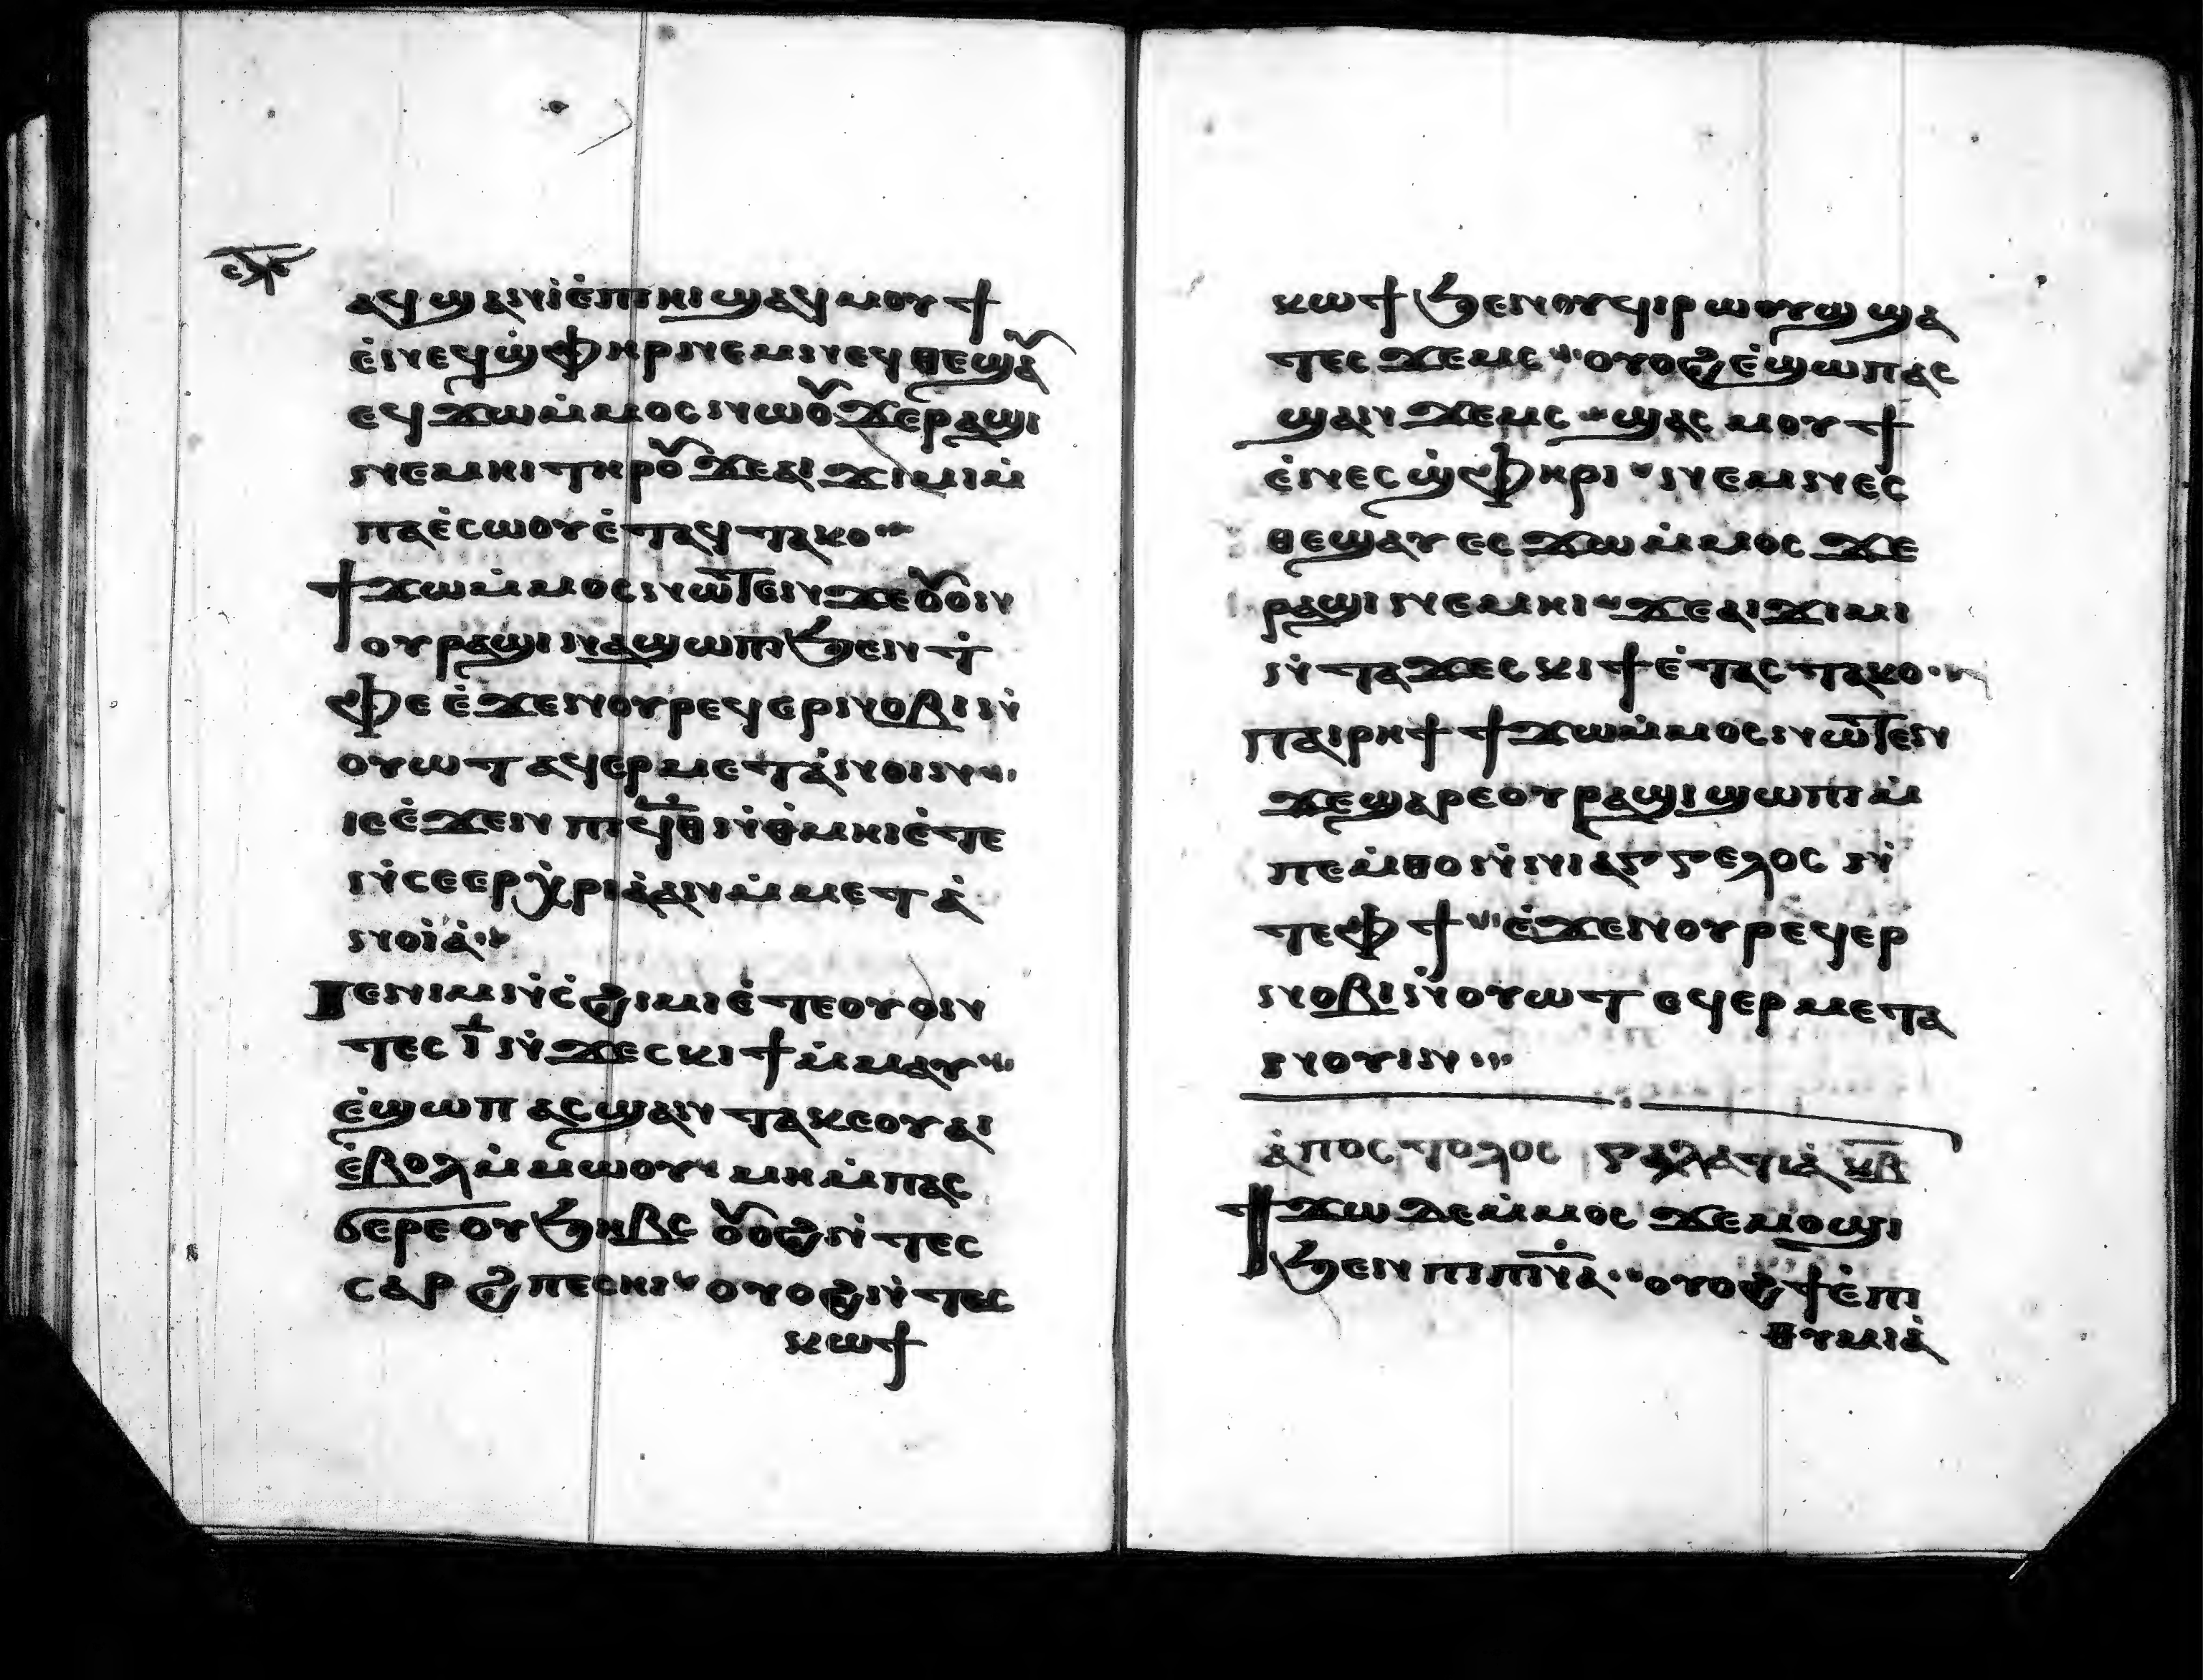 ⲁϥϣⲁⲛⲓ̀ⲉ̀ⲡⲓⲏⲓϣⲁϥⲙⲟⲩϯ
ⲉ̀ⲛⲉϥϣ̀ⲫⲏⲣⲛⲉⲙⲛⲉϥⲑⲉϣⲁ⩯
ⲉϥϫⲱⲙ̀ⲙⲟⲥⲛⲱⲟ⩯ϫⲉⲣⲁϣⲓ
ⲛⲉⲙⲏⲓⲧⲏⲣⲟ⩯ϫⲉⲁⲓϫⲓⲙⲓⲙ̀
ⲡⲁⲉ̀ⲥⲱⲟⲩⲉ̀ⲧⲁϥⲧⲁⲕⲟ
ϯϫⲱⲙ̀ⲙⲟⲥⲛⲱⲧ̅ⲉⲛϫⲉⲟ⩯ⲟⲛ
ⲟⲩⲣⲁϣⲓⲛⲁϣⲱⲡⲓϧⲉⲛⲧ̀
ⲫⲉⲉ̀ϫⲉⲛⲟⲩⲣⲉϥⲉⲣⲛⲟⲃⲓⲛ̀
ⲟⲩⲱⲧⲁϥⲉⲣⲙⲉⲧⲁ̀ⲛⲟⲓⲛ
ⲓⲉⲉ̀ϫⲉⲛⲡⲓϥ̅ⲑ̅ⲛ̀ⲑ̀ⲙⲏⲓⲉ̀ⲧⲉ
ⲛ̀ⲥⲉⲉⲣⲭ̀ⲣⲓⲁ̀ⲁⲛⲙ̀ⲙⲉⲧⲁ̀
ⲛⲟⲓ̀ⲁ̀
ⲓⲉⲛⲓⲙⲛ̀ⲥ̀ϩⲓⲙⲓⲉ̀ⲧⲉⲟⲩⲟⲛ
ⲧⲉⲥⲓ̅ⲛ̀ϫⲉⲥⲕⲓϯⲙ̀ⲙⲁⲩ
ⲉ̀ϣⲱⲡⲁⲥϣⲁⲛⲧⲁⲕⲉⲟⲩⲁⲓ
ⲉ̀ⲃⲟⲗⲙ̀ⲙⲱⲟⲩⲙⲏⲙ̀ⲡⲁⲥ
ϭⲉⲣⲉⲟⲩϧⲏⲃⲥⲟ⩯ⲟϩⲛ̀ⲧⲉⲥ
ⲥⲁⲣϩⲡⲉⲥⲏⲓⲟⲩⲟϩⲛ̀ⲧⲉⲥ
ⲕⲱϯ
ⲕⲱϯϧⲉⲛⲟⲩϥⲓⲣⲱⲟⲩϣϣⲁ
ⲧⲉⲥϫⲉⲙⲥⲟⲩⲟϩⲉ̀ϣⲱⲡⲁⲥ
ϣⲁⲛϫⲉⲙⲥϣⲁⲥⲙⲟⲩϯ
ⲉ̀ⲛⲉⲥϣ̀ⲫⲏⲣⲓⲛⲉⲙⲛⲉⲥ
ⲑⲉϣⲁⲩⲉⲥϫⲱⲙ̀ⲙⲟⲥϫⲉ
ⲣⲁϣⲓⲛⲉⲙⲏⲓϫⲉⲁⲓϫⲓⲙⲓ
ⲛ̀ⲧⲁϫⲉⲥⲕⲓϯⲉ̀ⲧⲁⲥⲧⲁⲕⲟ
ⲡⲁⲓⲣⲏϯϯϫⲱⲙ̀ⲙⲟⲥⲛⲱⲧ̅ⲉⲛ
ϫⲉϣⲁⲣⲉⲟⲩⲣⲁϣⲓϣⲱⲡⲓⲙ̀
ⲡⲉⲙ̀ⲑⲟⲛ̀ⲛⲓⲁⲅⲅⲉⲗⲟⲥⲛ̀
ⲧⲉⲫϯⲉ̀ϫⲉⲛⲟⲩⲣⲉϥⲉⲣ
ⲛⲟⲃⲓⲛ̀ⲟⲩⲱⲧⲉϥⲉⲣⲙⲉⲧⲁ
ⲛⲟⲩⲓⲛ
ⲁ̀ⲡⲟⲥⲧⲟⲗⲟⲥ ⲅⲁⲗⲁⲧⲓⲁ̀ ⲕ̅ⲃ̅
ϯϫⲱⲇⲉⲙ̀ⲙⲟⲥϫⲉⲙⲟϣⲓ
ϧⲉⲛⲡⲓⲡ̅ⲛ̅ⲁ̅ⲟⲩⲟϩϯⲉ̀ⲡⲓ
ⲑⲩⲙⲓⲁ̀